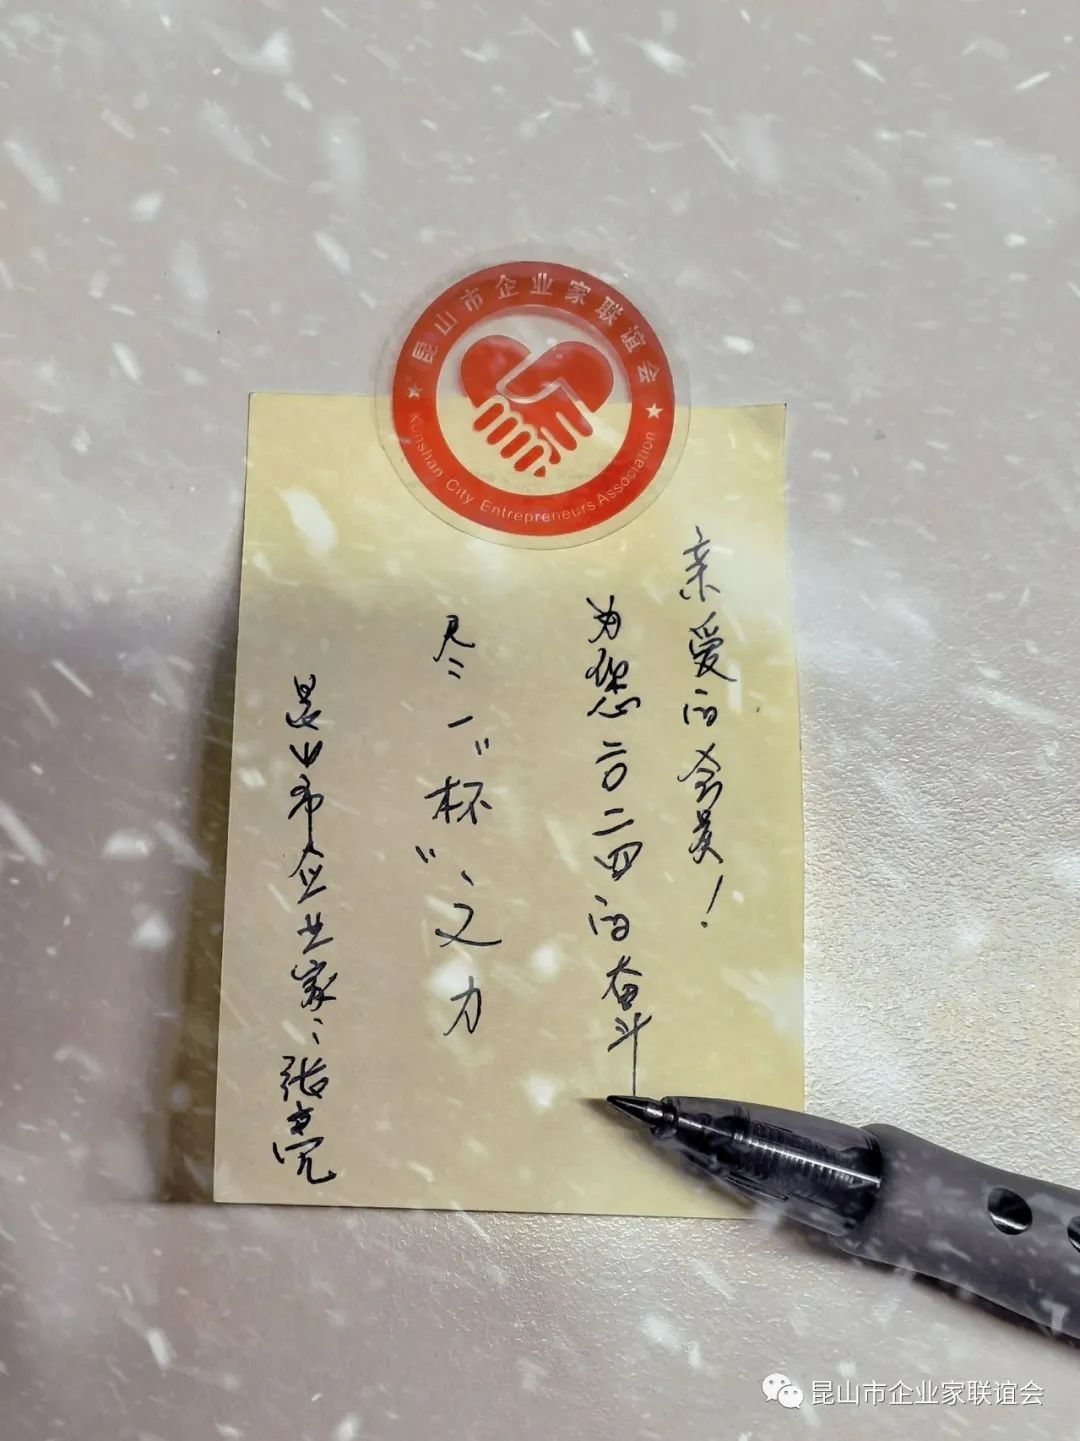 昆山市企业家联谊会
Kunshan City Entrepreneurs Association
亲爱的会员！
为您二〇二四的奋斗
尽一“杯”之力
昆山市企业家：张亮
昆山市企业家联谊会